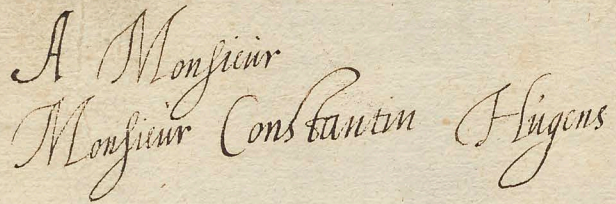 A Monsieur
Monsieur Constantin Hugens